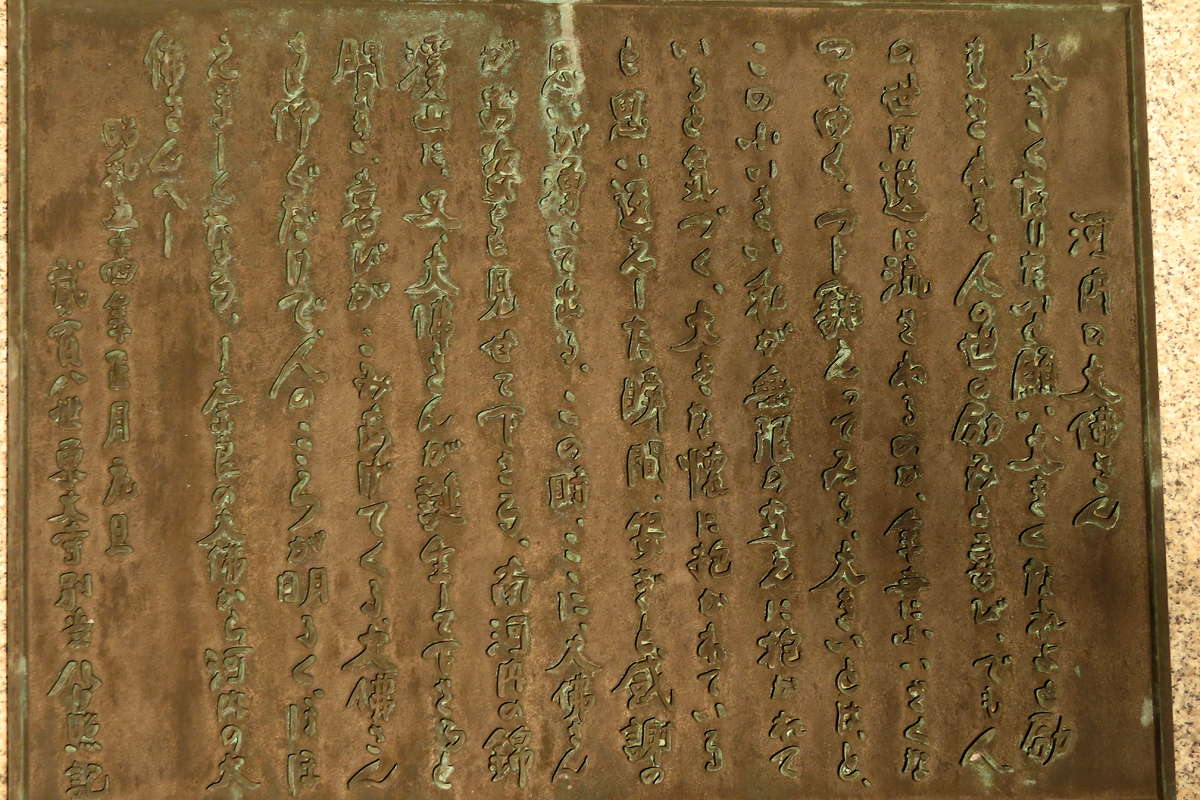 河内の大佛さん
大きくなりたいと願い、大きくなれよと励
まされる、人の世の励みと喜び、でも人
の世は逆に流されるのか、年毎に小いさくな
つてゆく、フト翻えってみる、大きいとは、と、
この小いさい私が無限のに抱かれて
いると気づく、大きな懐に抱かれている
と思い返えした瞬間、安らぎと感謝の
思いが湧いて出る、この時、ここに、大佛さん
がお姿を見せて下さる、南河内の錦
渓山に、又、大佛さんが誕生して下さると
聞き、喜びがこみあげてくる、大佛さん
を仰ぐだけで、人のこころが明るくほほ
えましくなる、ー奈良の大佛から河内の大
佛さんへー
昭和五十四年正月元旦
貳百八世東大寺別當公照記